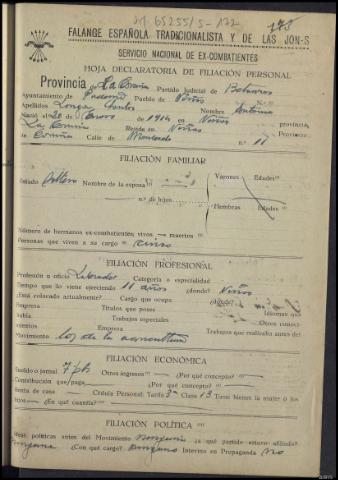 65255/S-172
175
FALANGE ESPAÑOLA TRADICIONALISTA Y DE LAS JON-S
SERVICIO NACIONAL DE EX-COMBATIENTES
HOJA DECLARATORIA DE FILIACIÓN PERSONAL
Provincia de La Coruña Partido Judicial de Betanzos
Ayuntamiento de Paderne Pueblo de Viñas
Apellidos Longa Nombre Antonio
Nació el 28 de Enero de 1914 en Viñas provincia,
La Coruña Reside en Viñas Provincia
Coruña Calle de n.º 11
FILIACIÓN FAMILIAR
Estado Soltero Nombre de la esposa Varones Edades
n.º de hijos
Hembras Edades
Número de hermanos ex-combatientes: vivos — muertos
Personas que viven a su cargo cinco
FILIACIÓN PROFESIONAL
Profesión u oficio Labrador Categoría o especialidad
Tiempo que lo viene ejerciendo 11 años ¿donde? Viñas
¿Está colocado actualmente? Cargo que ocupa ¿dónde?
Títulos que posee Idiomas que
habla Trabajos especiales Otros conoci-
mientos Empresa Trabajos que realizaba antes del
Movimiento los de la agricultura
FILIACIÓN ECONÓMICA
Sueldo o jornal 7 pts Otros ingresos — ¿Por qué concepto? —
Contribución que paga ¿Por qué concepto? —
Renta de casa — Cédula Personal: Tarifa 3ª Clase 13 Tiene bienes la mujer o los
hijos — ¿En qué cuantía?
FILIACIÓN POLÍTICA
Ideas políticas antes del Movimiento ninguna ¿a qué partido estuvo afiliado?
ninguno ¿Con qué cargo? ninguno Intervino en Propaganda no